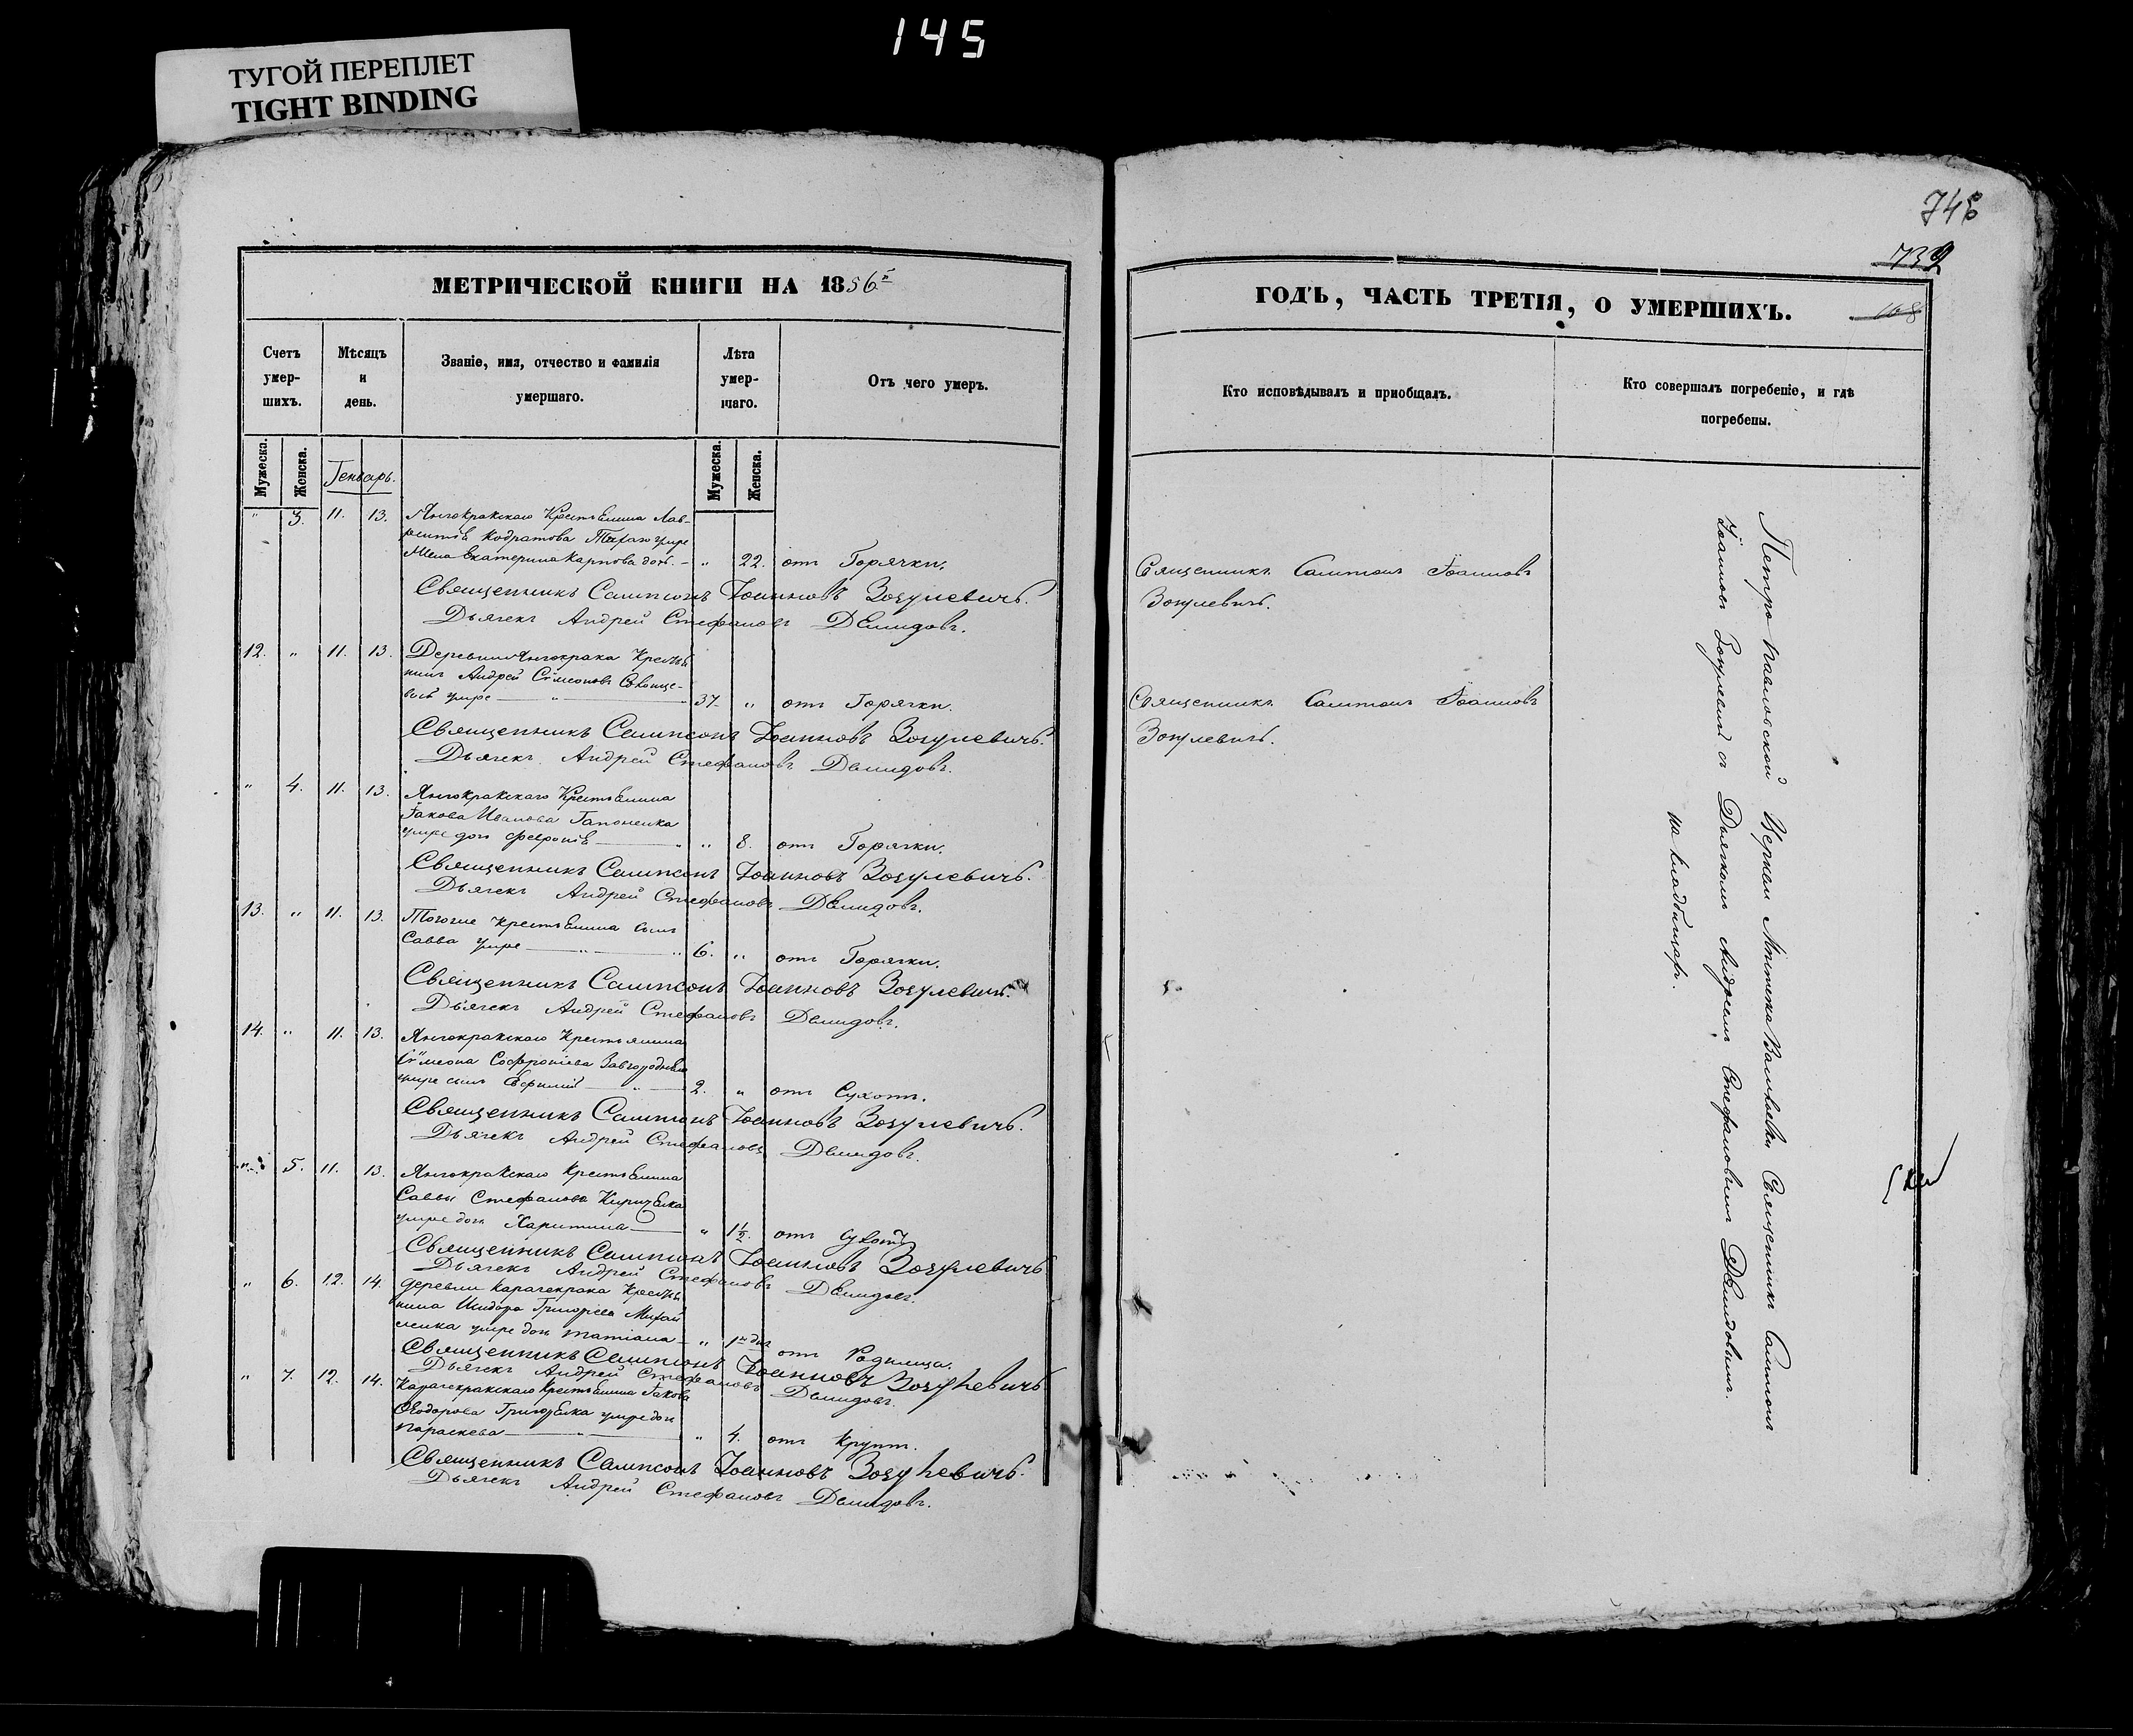 145
ТУГОЙ ПЕРЕПЛЕТ
TIGHT BINDING
МЕТРИЧЕСКОЙ КНИГИ НА 1856й
Счетъ умер- шихъ.
Мѣсяцъ и день.
Званіе, имя, отчество и фамилія умершаго.
Лѣта умер- шаго.
Отъ чего умеръ.
Мужеска.
Женска.
Генварь.
Мужеска.
Женска.
" 3. 11. 13. Янчокракскаго Крестьянина Лав-
рентія Кодратова умре
Жена Екатерина Карпова дочь. " 22. отъ Горячки.
Священникъ Сампсонъ Іоанновъ Зогулевичъ.
Дьячекъ Андрей Стефановъ Демидовъ.
12. " 11. 13. Деревни Янчокрака Кресть
нинъ Андрей Сѵмеоновъ
умре 37 " отъ Горячки.
Священникъ Сампсонъ Іоанновъ Зогулевичъ.
Дьячекъ Андрей Стефановъ Демидовъ.
" 4. 11. 13. Янчокракскаго Крестьянина
Іакова Иванова Гапоненка
умре дочь Февронія " 8. отъ Горячки.
Священникъ Сампсонъ Іоанновъ Зогулевичъ.
Дьячекъ Андрей Стефановъ Демидовъ.
13. " 11. 13. Тогоже Крестьянина сынъ
Савва умре 6. " отъ Горячки.
Священникъ Сампсонъ Іоанновъ Зогулевичъ.
Дьячекъ Андрей Стефановъ Демидовъ.
14. " 11. 13. Янчокракскаго Крестьянина
Сѵмеона Софроніева
умре сынъ Евфимій 2. " отъ Сухотъ.
Священникъ Сампсонъ Іоанновъ Зогулевичъ.
Дьячекъ Андрей Стефановъ Демидовъ.
" 5. 11. 13. Янчокракскаго Крестьянина
Саввы Стефанова
умре дочь Харитина " 1½. отъ Сухотъ
Священникъ Сампсонъ Іоанновъ Зогулевичъ
Дьячекъ Андрей Стефановъ Демидовъ.
" 6. 12. 14. деревни Карачекрака Кресть
нина Исидора Григорьева Михай
ленка умре дочь Татіана " отъ Родимца.
Священникъ Сампсонъ Іоанновъ Зогулевичъ
Дьячекъ Андрей Стефановъ Демидовъ.
" 7. 12. 14. Карачекракскаго Крестьянина Іакова
Ѳеодорова умре дочь
Параскева " 4. отъ Крупъ.
Священникъ Сампсонъ Іоанновъ Зогулевичъ.
Дьячекъ Андрей Стефановъ Демидовъ.
739
ГОДЪ, ЧАСТЬ ТРЕТІЯ, О УМЕРШИХЪ.
168
Кто исповѣдывалъ и пріобщалъ.
Кто совершалъ погребеніе, и гдѣ
погребены.
Священникъ Сампсонъ Іоанновъ
Зогулевичъ.
Священникъ Сампсонъ Іоанновъ
Зогулевичъ.
Петро Павловской Церкви Священникъ Сампсонъ
Іоанновъ Зогулевичъ съ Дьячкомъ Андреемъ Стефановымъ Демидовымъ.
на кладбищахъ.